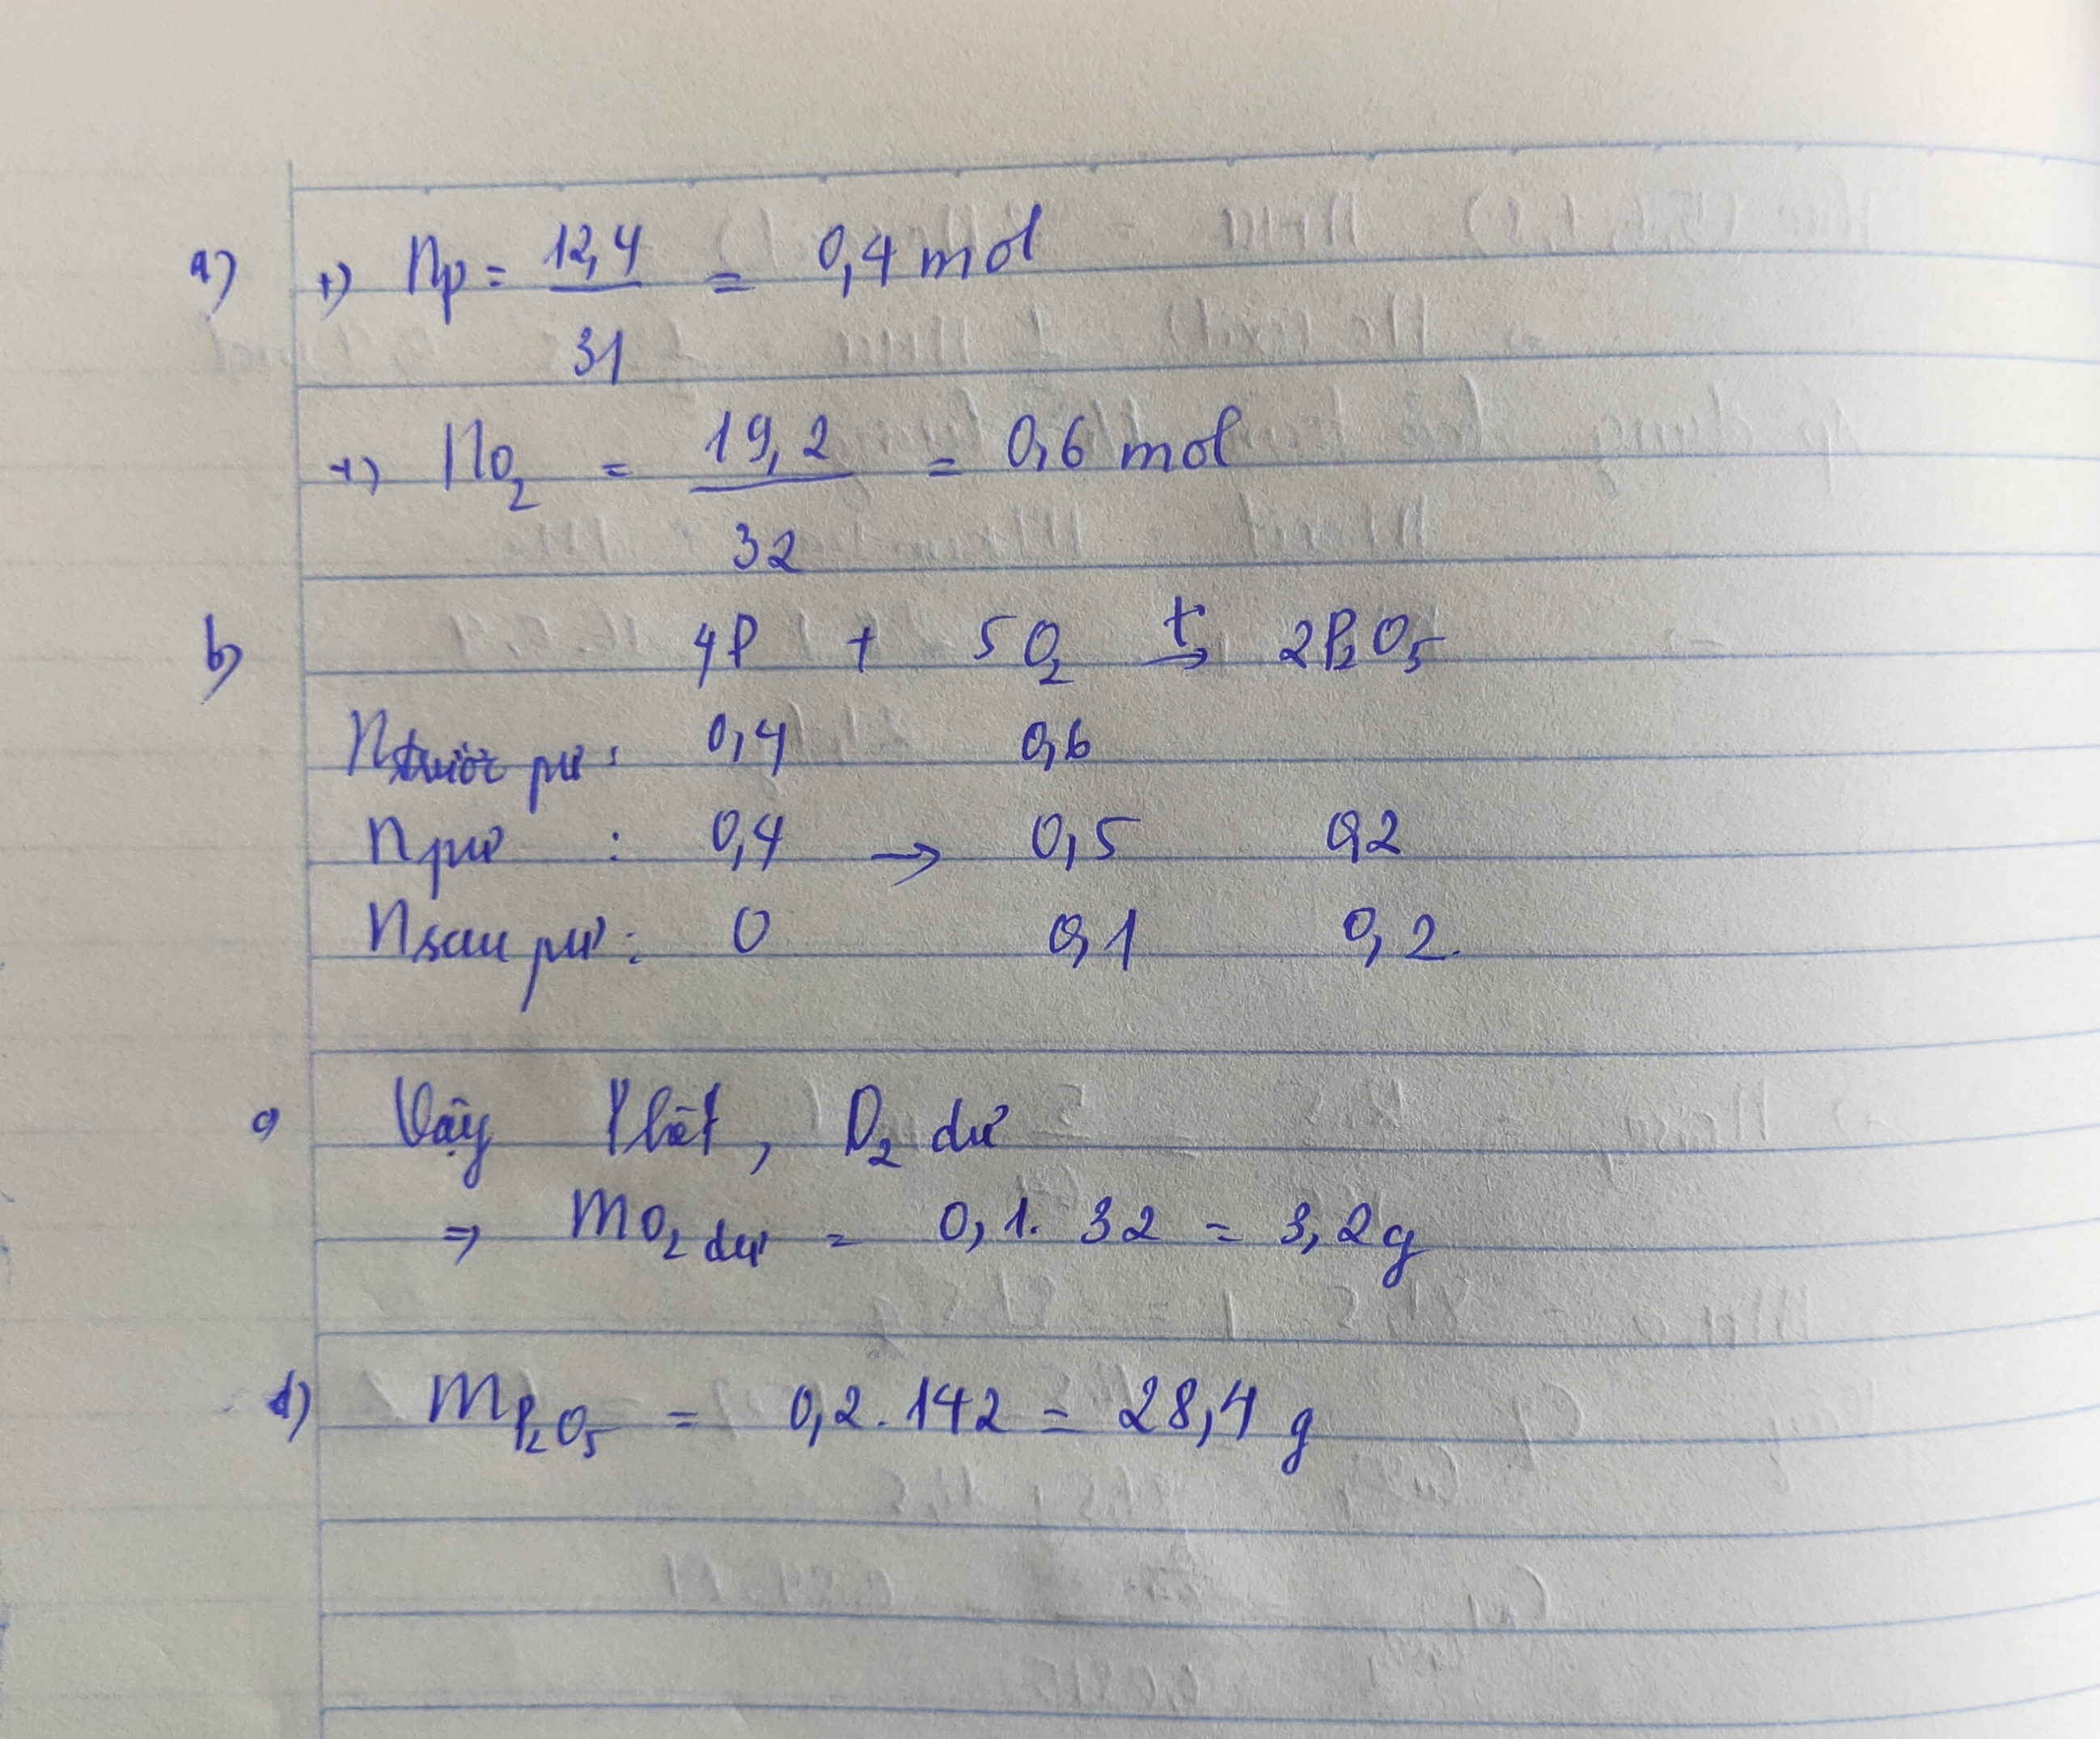 a) +) nP = 12,4 / 31 = 0,4 mol
+) nO2 = 19,2 / 32 = 0,6 mol
b) 4P + 5O2 t°→ 2P2O5
ntrước pư : 0,4 0,6
npư : 0,4 → 0,5 0,2
nsau pư : 0 0,1 0,2.
c) Vậy P hết, O2 dư
⇒ mO2 dư = 0,1. 32 = 3,2g
d) mP2O5 = 0,2.142 = 28,4 g